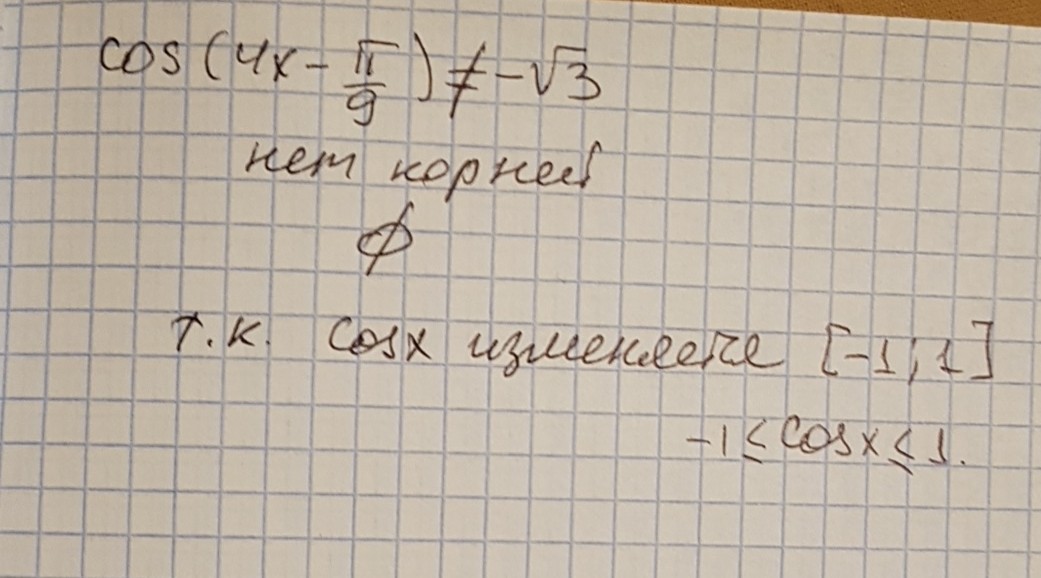 cos(4x - π/9) ≠ -√3
нет корней
∅
т.к. cosx изменяется [-1; 1]
-1 ≤ cosx ≤ 1.